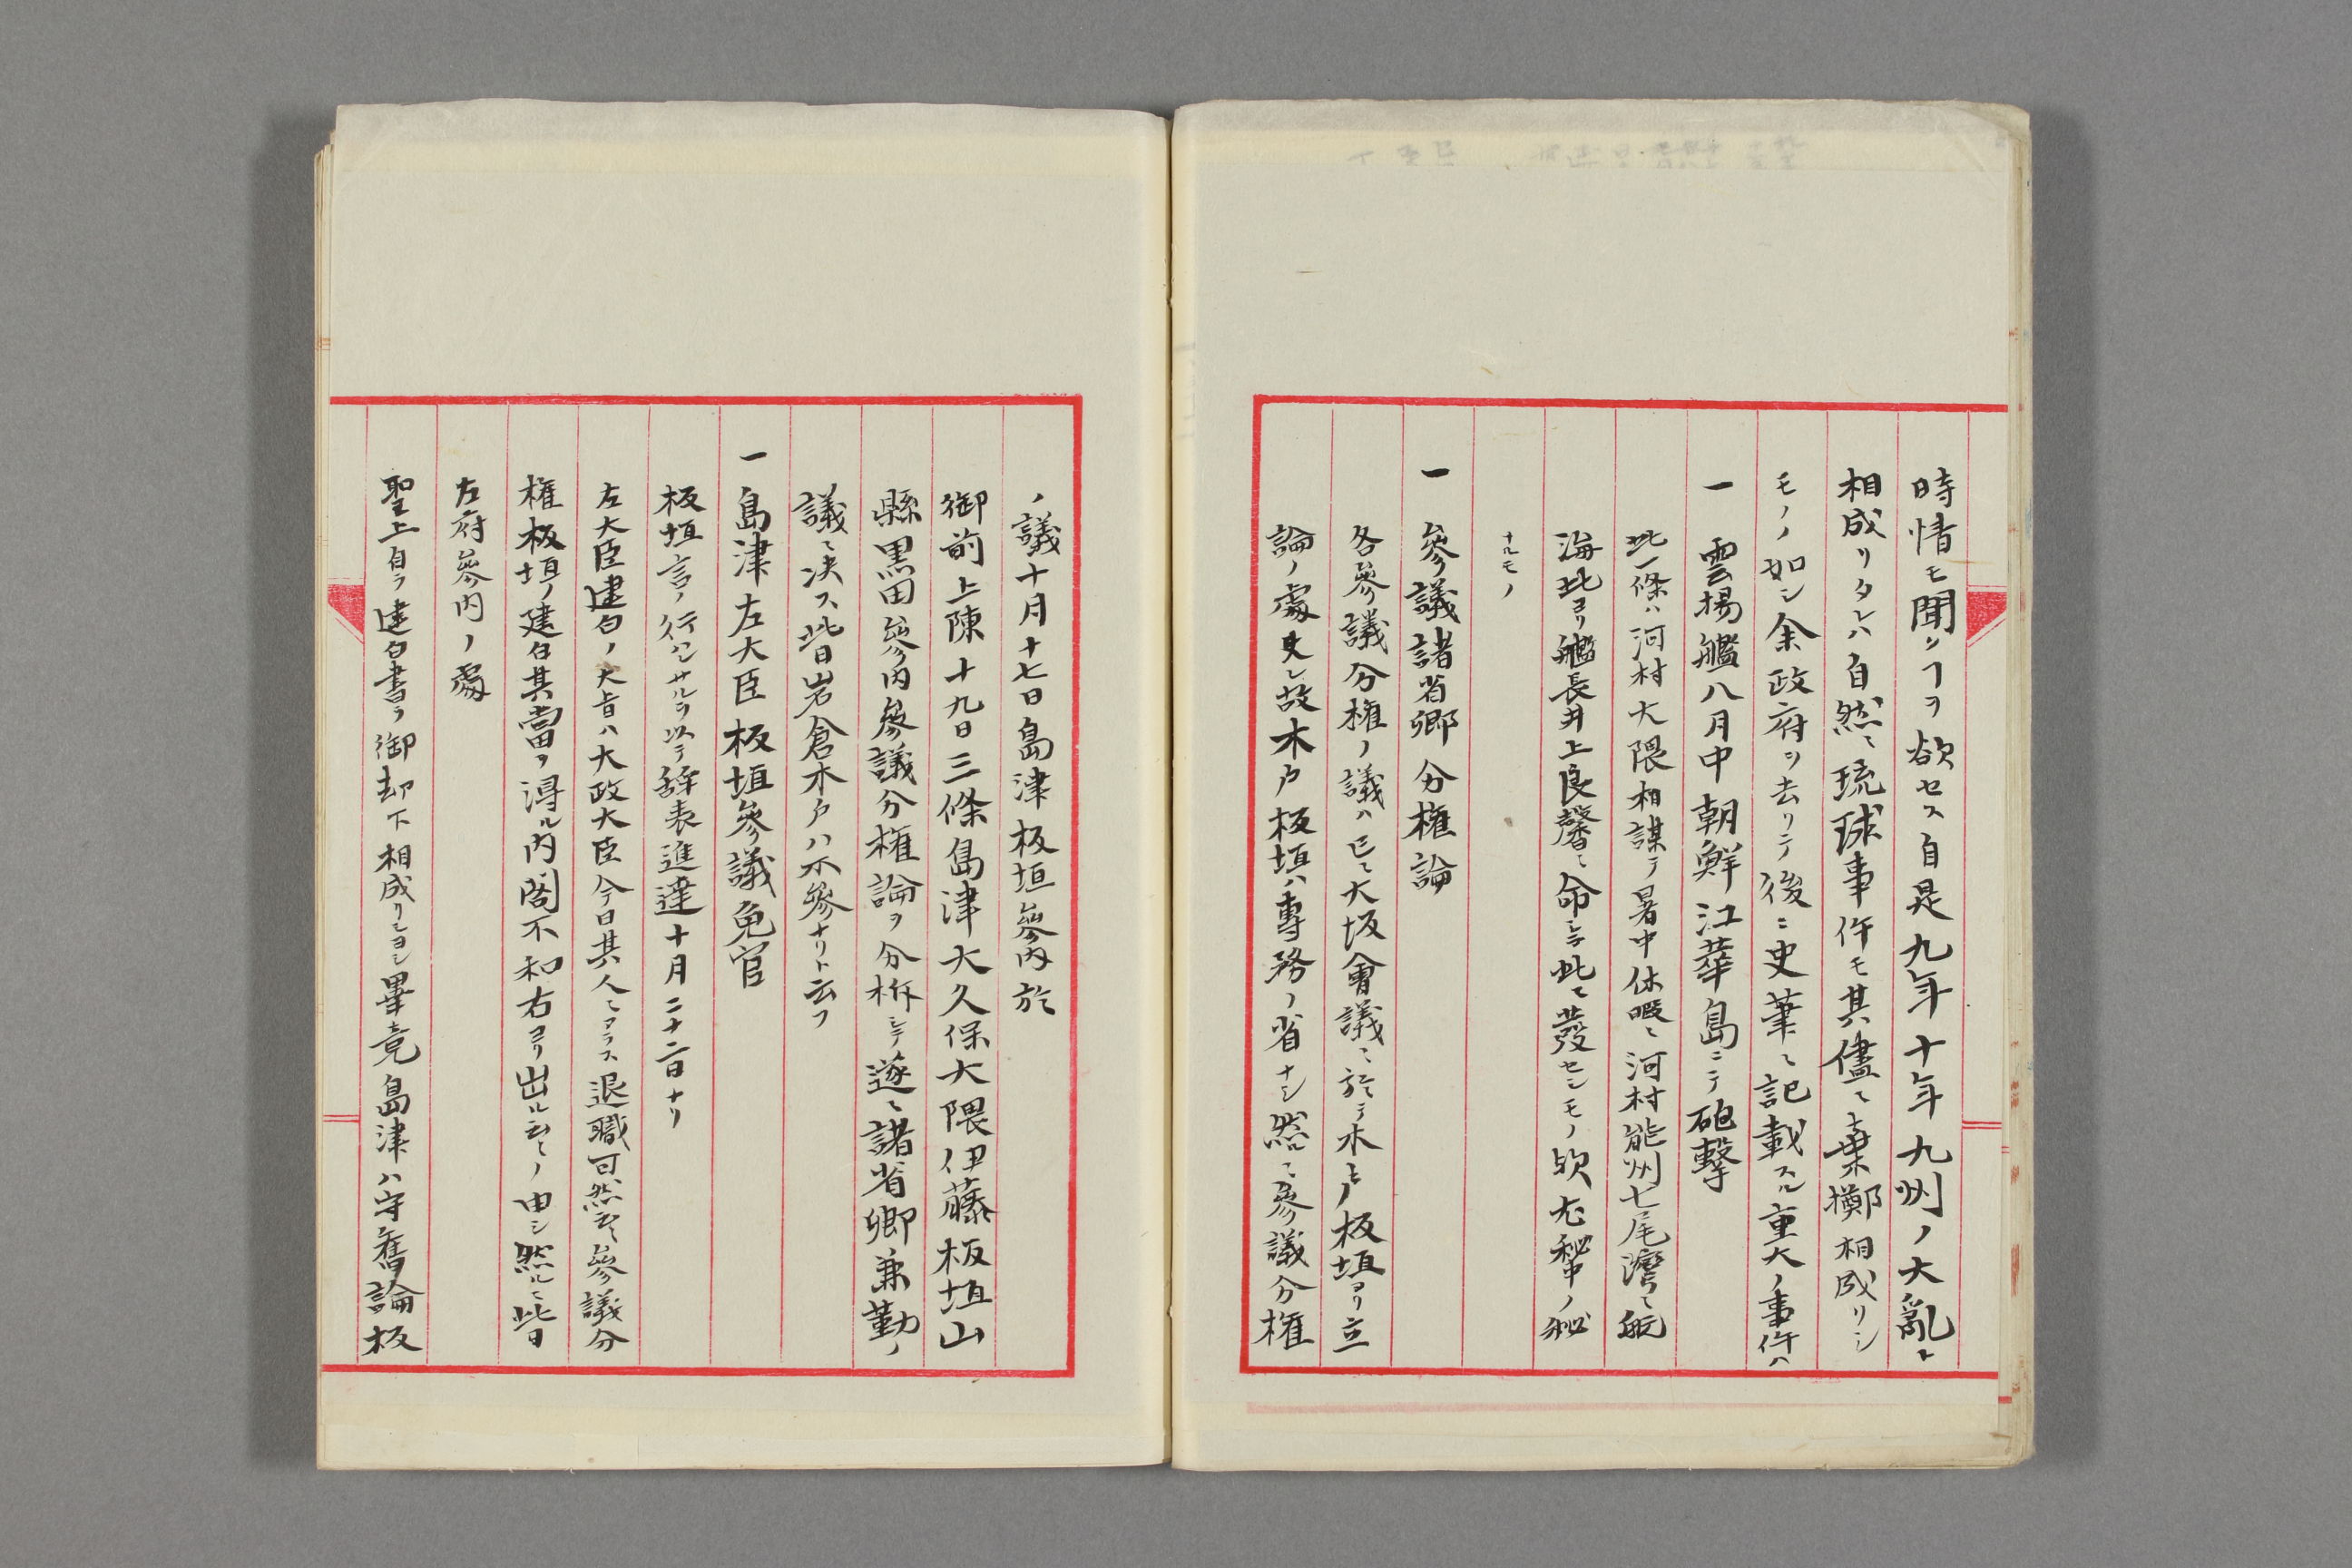 時情モ聞クヿヲ欲セス自是九年十年九州ノ大亂ニ
相成リタレハ自然ニ琉球事件モ其儘ニ棄擲相成リシ
モノノ如シ余政府ヲ去リテ後ニ史筆ニ記載スル重大ノ事件ハ
一 雲揚艦八月中朝鮮江華島ニテ砲擊
此一條ハ河村大隈相謀テ暑中休暇ニ河村能州七尾灣ニ航
海此ヨリ艦長井上良馨ニ命シテ此ニ發セシモノ欤尤秘中ノ秘
ナルモノ
一 參議諸省卿分權論
各參議分權ノ議ハ已ニ大坂會議ニ於テ木戸板垣ヨリ立
論ノ處史シ故木戸板垣ハ專務ノ省ナシ然ルニ參議分權
ノ議十月十七日島津板垣參內於
御前上陳十九日三條島津大久保大隈伊藤板垣山
縣黒田參內參議分權論ヲ分柝シテ遂ニ諸省卿兼勤ノ
議ニ决ス此日岩倉木戸ハ不參ナリト云フ
一 島津左大臣板垣參議免官
板垣言ノ行ハレサルヲ以テ辞表進達十月二十二日ナリ
左大臣建白ノ大旨ハ大政大臣今日其人ニアラス退職可然云々參議分
權板垣ノ建白其當ヲ得ル內閣不和右ヨリ出ル云々ノ由シ然ルニ此日
左府參內ノ處
聖上自ラ建白書ヲ御却下相成リシヨシ畢竟島津ハ守舊論板